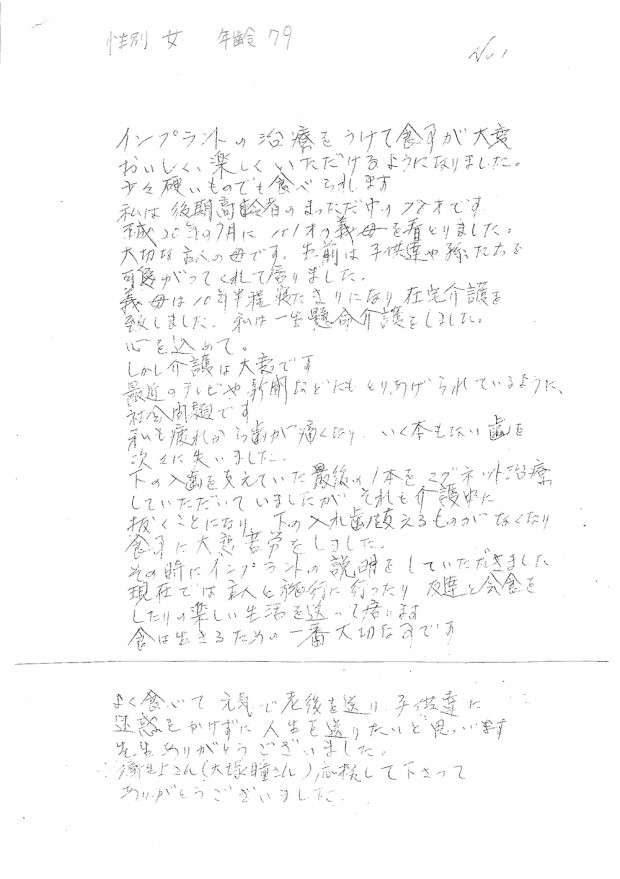 性別 女 年齢 79
No.1
インプラントの治療をうけて食事が大変
おいしく、楽しくいただけるようになりました。
少々硬いものでも食べられます
私は後期高齢者のまっただ中の78才です
平成20年の7月に101才の義母を看とりました。
大切な主人の母です。生前は子供達や孫たちを
可愛がってくれて居りました。
義母は10年半程寝たきりになり在宅介護を
致しました。私は一生懸命介護をしました。
心を込めて。
しかし介護は大変です
最近のテレビや新聞などにもとりあげられているように、
社会問題です
私も疲れから歯が痛くなり、いく本もない歯を
次々に失いました。
下の入歯を支えていた最後の1本をマグネット治療
していただいていましたが それも介護中に
抜くことになり、下の入れ歯を支えるものがなくなり
食事に大変苦労をしました。
その時にインプラントの説明をしていただきました
現在では主人と旅行に行ったり 友達と会食を
したりの楽しい生活を送って居ります
食は生きるための一番大切な事です
よく食べて 元気で老後を送り 子供達に
迷惑をかけずに 人生を送りたいと思います
先生ありがとうございました。
衛生士さん(大塚瞳さん)応援して下さって
ありがとうございました。